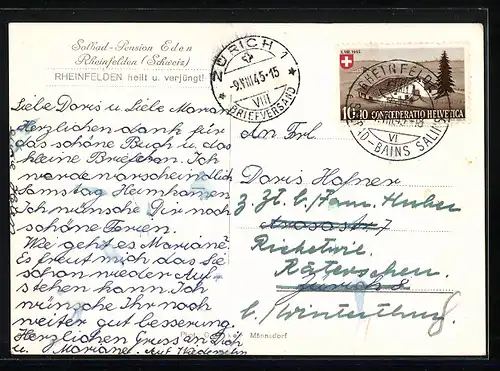 Solbad-Pension Eden
Rheinfelden (Schweiz)
RHEINFELDEN heilt u. verjüngt!
ZÜRICH 1
-9.VIII.45-15
VIII
BRIEFVERSAND
10+10 CONFOEDERATIO HELVETICA
RHEINFELDEN
VI
BAINS SALINS
Liebe Doris u. Liebe Mariane
Herzlichen dank für
das schöne Buch u. das
kleine Briefchen. Ich
werde warscheindlich
Samstag Heimkomen
Ich wünsche Dir noch
schöne Ferien.
Wie geht es Mariane?
Es freut mich das Sie
schon wieder Auf-
stehen kann. Ich
wünsche Ihr noch
weiter gut besserung.
Herzlichen Gruss an Dich
u. Mariane. Auf Wiedersehn
An Frl.
Doris Hofner
z. Zt. b/ Fam. Huber
Arosastr. 7
Ricketwil
Räterschen
Zürich 8
b/ Winterthur
Männedorf